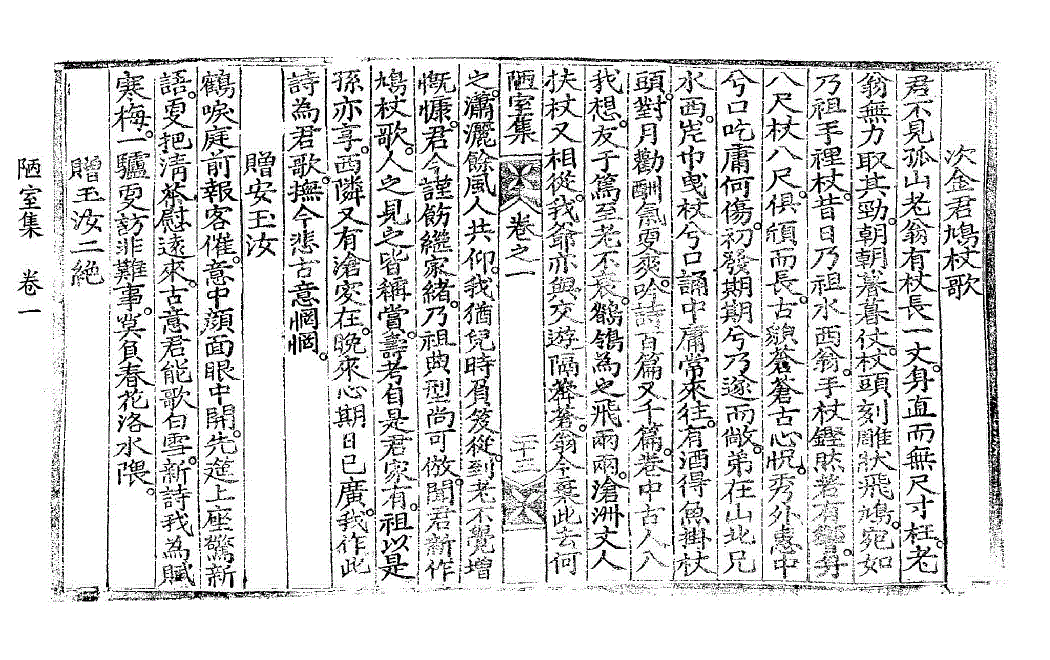 次金君鳩杖歌
君不見孤山老翁有杖長一丈。身直而無尺寸枉。老
翁無力取其勁。朝朝暮暮仗。杖頭刻雕狀飛鳩。宛如
乃祖手裡杖。昔日乃祖水西翁。手杖鏗然若有聲。身
八尺杖八尺。俱頎而長。古貌蒼蒼古心怳。秀外惠中
兮口吃庸何傷。初發期期兮乃遂而敞。弟在山北兄
水西。岸巾曳杖兮口誦中庸常來往。有酒得魚掛杖
頭。對月勸酬氣更爽。吟詩百篇又千篇。卷中古人八
我想。友于篤至老不衰。鶺鴒為之飛兩兩。滄洲丈人
扶杖又相從。我爺亦與交遊隔莽蒼。翁今棄此去何
陋室集 卷之一 二十三
之。瀟灑餘風人共仰。我猶兒時負笈從。到老不覺增
慨慷。君今謹飭繼家緒。乃祖典型尚可倣。聞君新作
鳩杖歌。人之見之皆稱賞。壽考自是君家有。祖以是
孫亦享。西隣又有滄叟在。晚來心期日已廣。我作此
詩為君歌。撫今悲古意惘惘。
贈安玉汝
鶴唳庭前報客催。意中顔面眼中開。先筵上座驚新
語。更把淸茶慰遠來。古意君能歌白雪。新詩我為賦
寒梅。一驢更訪非難事。莫負春花洛水隈。
贈玉汝二絶
陋室集 卷一